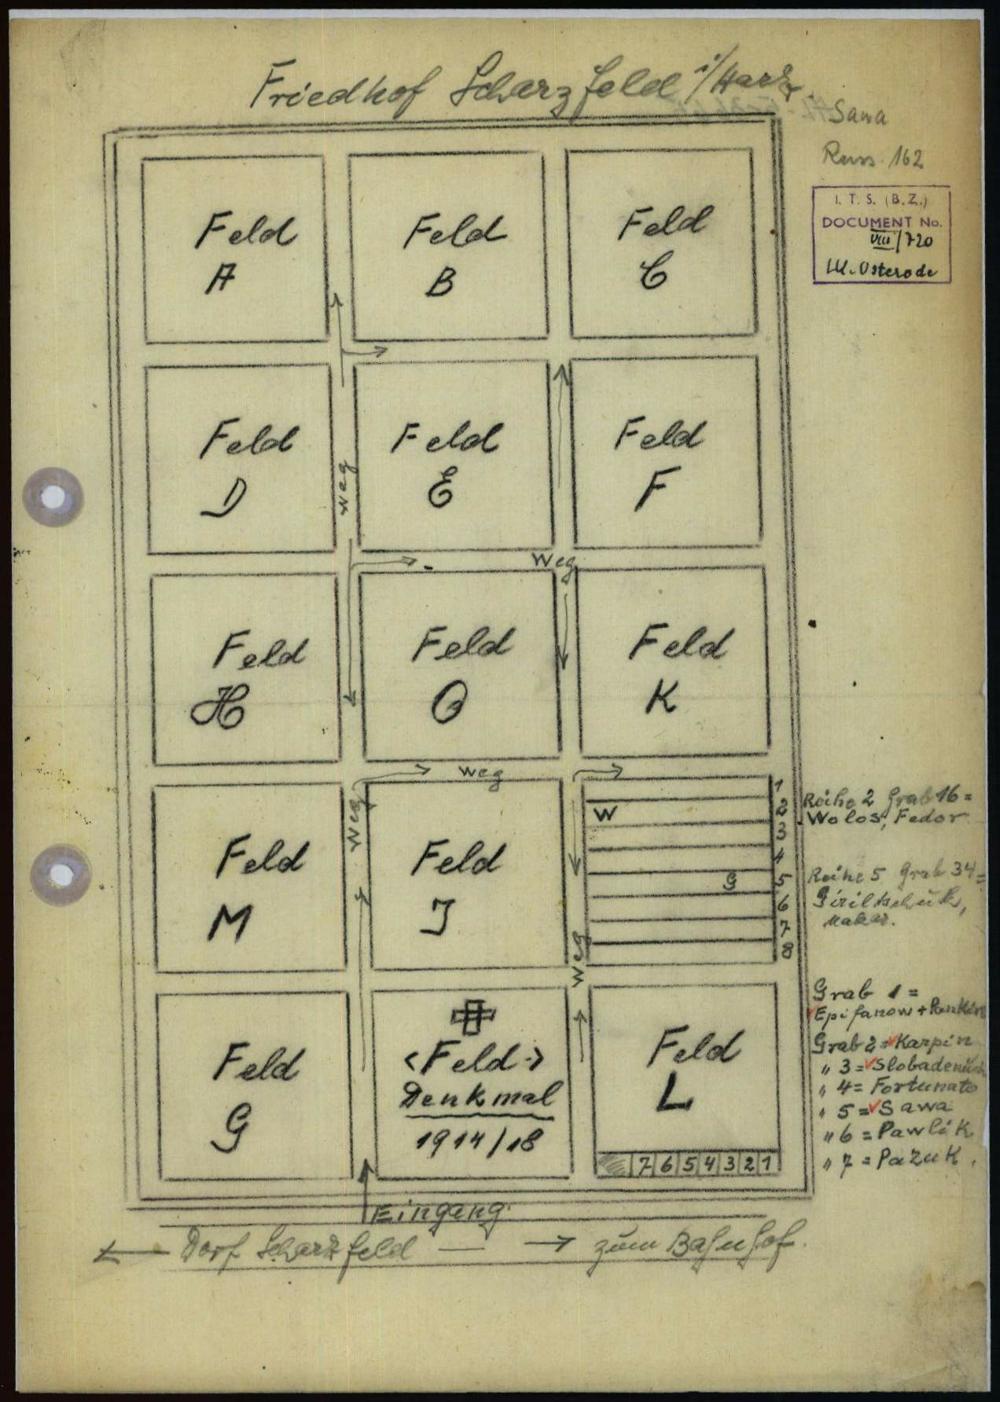 Friedhof Scharzfeld i/Harz.
Sawa
Russ. 162
I. T. S. (B.Z.)
DOCUMENT No.
VIII/720
Lk. Osterode
Feld
A
Feld
B
Feld
C
Feld
D
Weg
Feld
E
Feld
F
Weg
Feld
H
Feld
O
Feld
K
Weg
Weg
Feld
M
Feld
J
Weg
W
G
1
2
3
4
5
6
7
8
Reihe 2 Grab 16 =
Wolos, Fedor
Reihe 5 Grab 34 =
Makar.
Feld
G
<Feld>
Denkmal
1914/18
Feld
L
7 6 5 4 3 2 1
Grab 1 =
Epifanow +
Grab 2 = Karpin
" 3 =
" 4 = Fortunato
" 5 = Sawa
" 6 = Pawlik
" 7 = Pazuk.
Eingang.
← Dorf Scharzfeld — → zum Bahnhof.